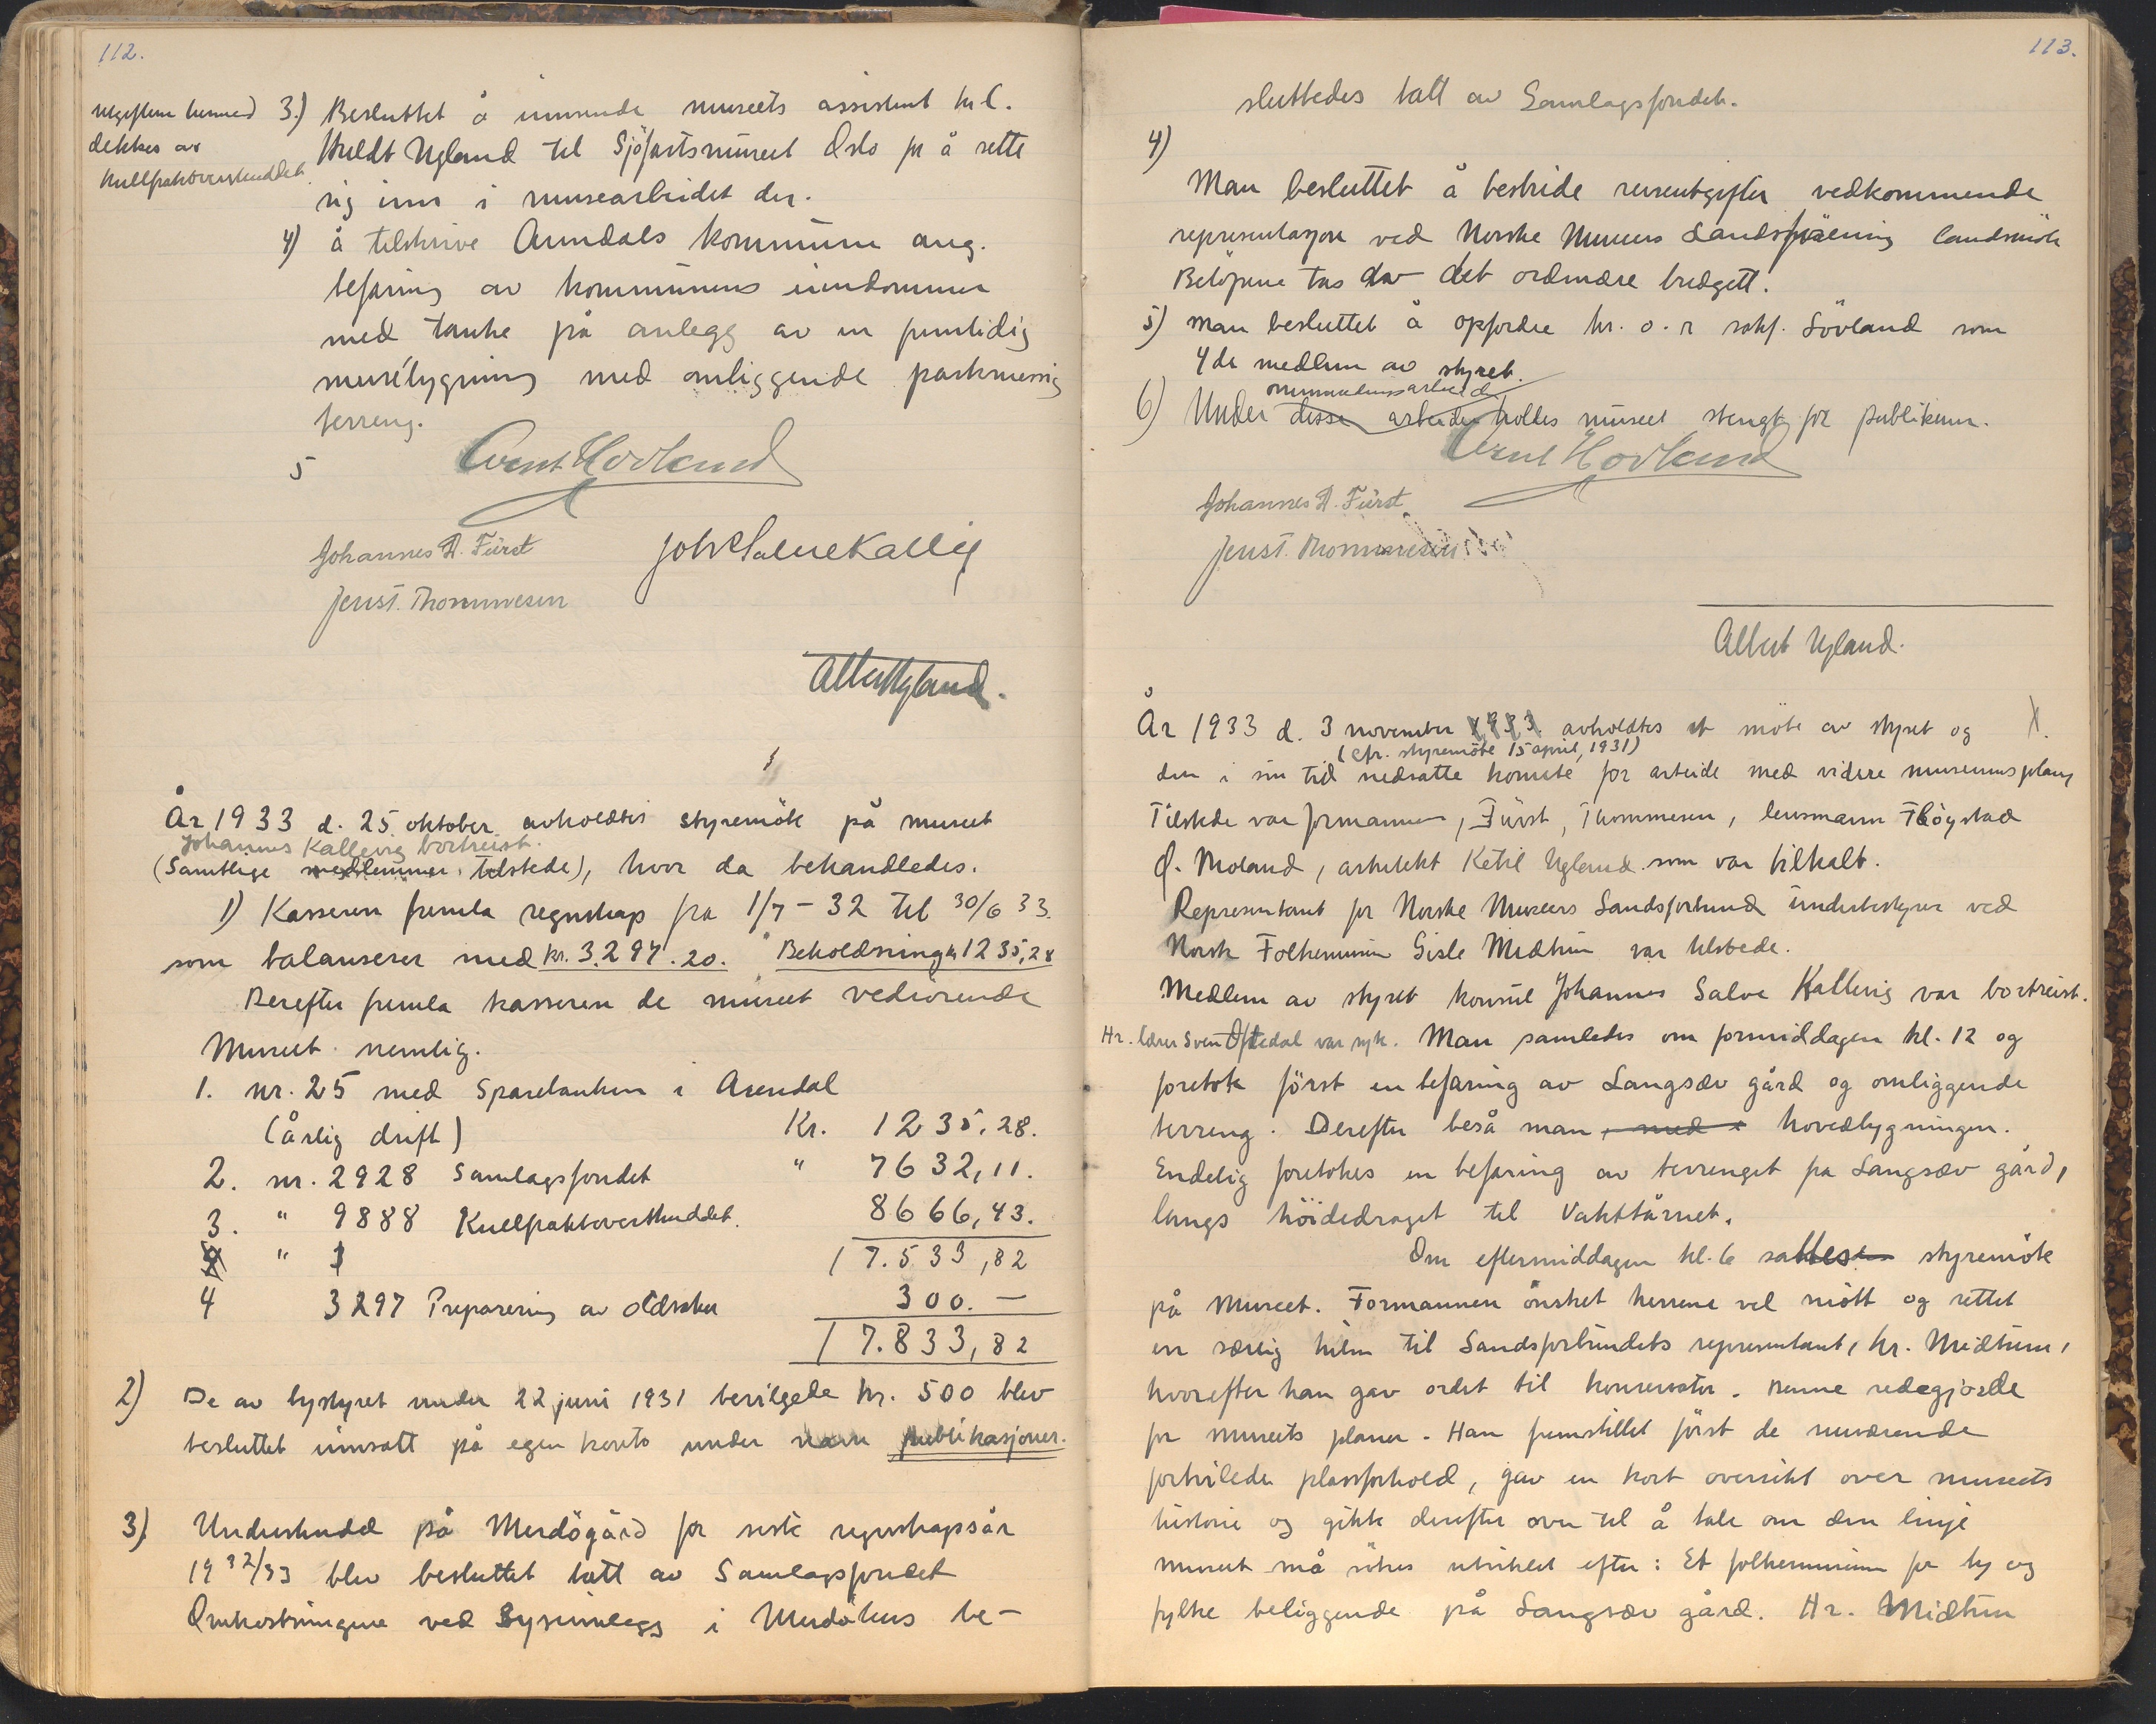 112.
utgiftene hermed
dekkes av
Kullfraktoverskuddet.
3.) Besluttet å innsende museets assistent
Huldt Ugland til Sjöfartsmuseet Oslo for å sette
sig inn i musearbeidet der.
4) å tilskrive Arendals kommune ang.
befaring av kommunens eiendommer
med tanke på anlegg av en fremtidig
musébygning med omliggende parkmessig
terreng.
5
Johannes A. Fürst
Joh Salve Kallevig
Jens T. Thommesen
Albert Ugland.
År 1933 d. 25 oktober avholdtes styremöte på museet
Johannes Kallevig bortreist.
(Samtlige medlemmer tilstede), hvor da behandledes.
1) Kasseren fremla regnskap fra 1/7 - 32 til 30/6 33.
som balanserer med kr. 3.297.20. Beholdning kr 1235,28
Derefter fremla kasseren de museet vedrörende
Museet nemlig.
1. nr. 25 med Sparebanken i Arendal
(årlig drift) Kr. 1235,28.
2. nr. 2928 Samlagsfondet " 7632,11.
3. " 9888 Kullfraktoverskuddet. 8666,43.
" 17.533,82
4 3297 Preparering av oldsaker 300.—
17.833,82
2) De av bystyret under 22 juni 1931 bevilgede kr. 500 blev
besluttet innsatt på egen konto under navn publikasjoner.
3) Underskudd på Merdögård for siste regnskapsår
1932/33 blev besluttet tatt av Samlagsfondet
Omkostningene ved lysinnlegg i Merdöhus be-
113.
sluttedes tatt av Samlagsfondet.
4)
Man besluttet å bestride reiseutgifter vedkommende
representasjon ved Norske Museers Landsforening landsmöte
Belöpene tas av det ordinære budgett.
5) Man besluttet å opfordre hr. o.r sakf. Sövland som
4de medlem av styret.
ominnredningsarbeid
6) Under disse arbeider holdes museet stengt for publikum.
Johannes A. Fürst
Jens T. Thommesen
Albert Ugland.
År 1933 d. 3 november 1933 avholdtes et möte av styret og
(cfr. styremöte 15 april, 1931)
den i sin tid nedsatte komite for arbeide med videre museumsplaner
Tilstede var formannen, Fürst, Thommesen, lensmann Flögstad
O. Moland, arkitekt Ketil Ugland som var tilkalt.
Representant for Norske Museers Landsforbund underbestyrer ved
Norsk Folkemuseum Gisle Midttun var tilstede.
Medlem av styret konsul Johannes Salve Kallevig var bortreist.
Hr. lærer Sven Oftedal var syk. Man samledes om formiddagen kl. 12 og
foretok först en befaring av Langsæv gård og omliggende
terreng. Derefter beså man, med hovedbygningen.
Endelig foretokes en befaring av terrenget fra Langsæv gård,
langs höidedraget til Vakttårnet.
Om eftermiddagen kl. 6 sattes styremöte
på museet. Formannen önsket herrene vel mött og rettet
en særlig hilsen til Landsforbundets representant, hr. Midttun,
hvorefter han gav ordet til konservator. Denne redegjorde
for museets planer. Han fremstillet först de nuværende
fortvilede plassforhold, gav en kort oversikt over museets
historie og gikk derefter over til å tale om den linje
museet må sökes utviklet efter: Et folkemuseum for by og
fylke beliggende på Langsæv gård. Hr. Midttun